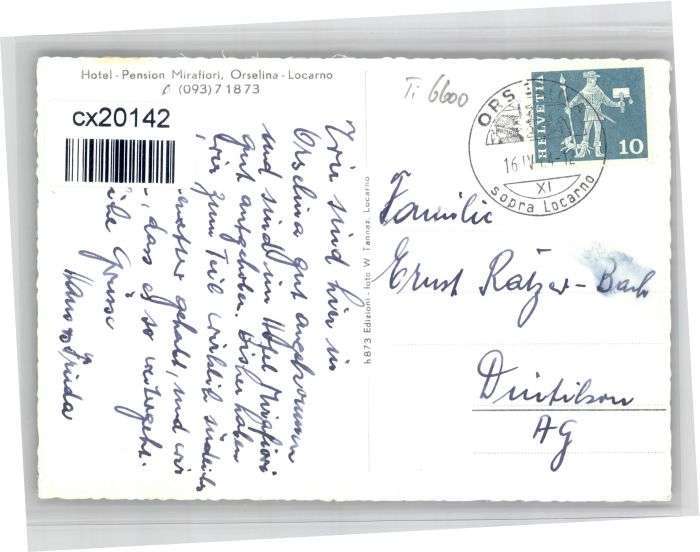 Hotel - Pension Mirafiori, Orselina - Locarno
✆ (093) 7 18 73
cx20142
Ti 6600
ORS
16. IV
XI
sopra Locarno
HELVETIA
10
Wir sind hier in
Orselina gut angekommen
und sind im Hotel Mirafiori
gut aufgehoben. Bisher haben
wir zum Teil wirklich
wetter gehabt, und wir
, dass es so weitergeht.
Grüsse
Hans & Frieda
hB73 Edizioni - foto W. Tannaz, Locarno
Familie
Ernst Rätzer-Bach
Dintikon
AG